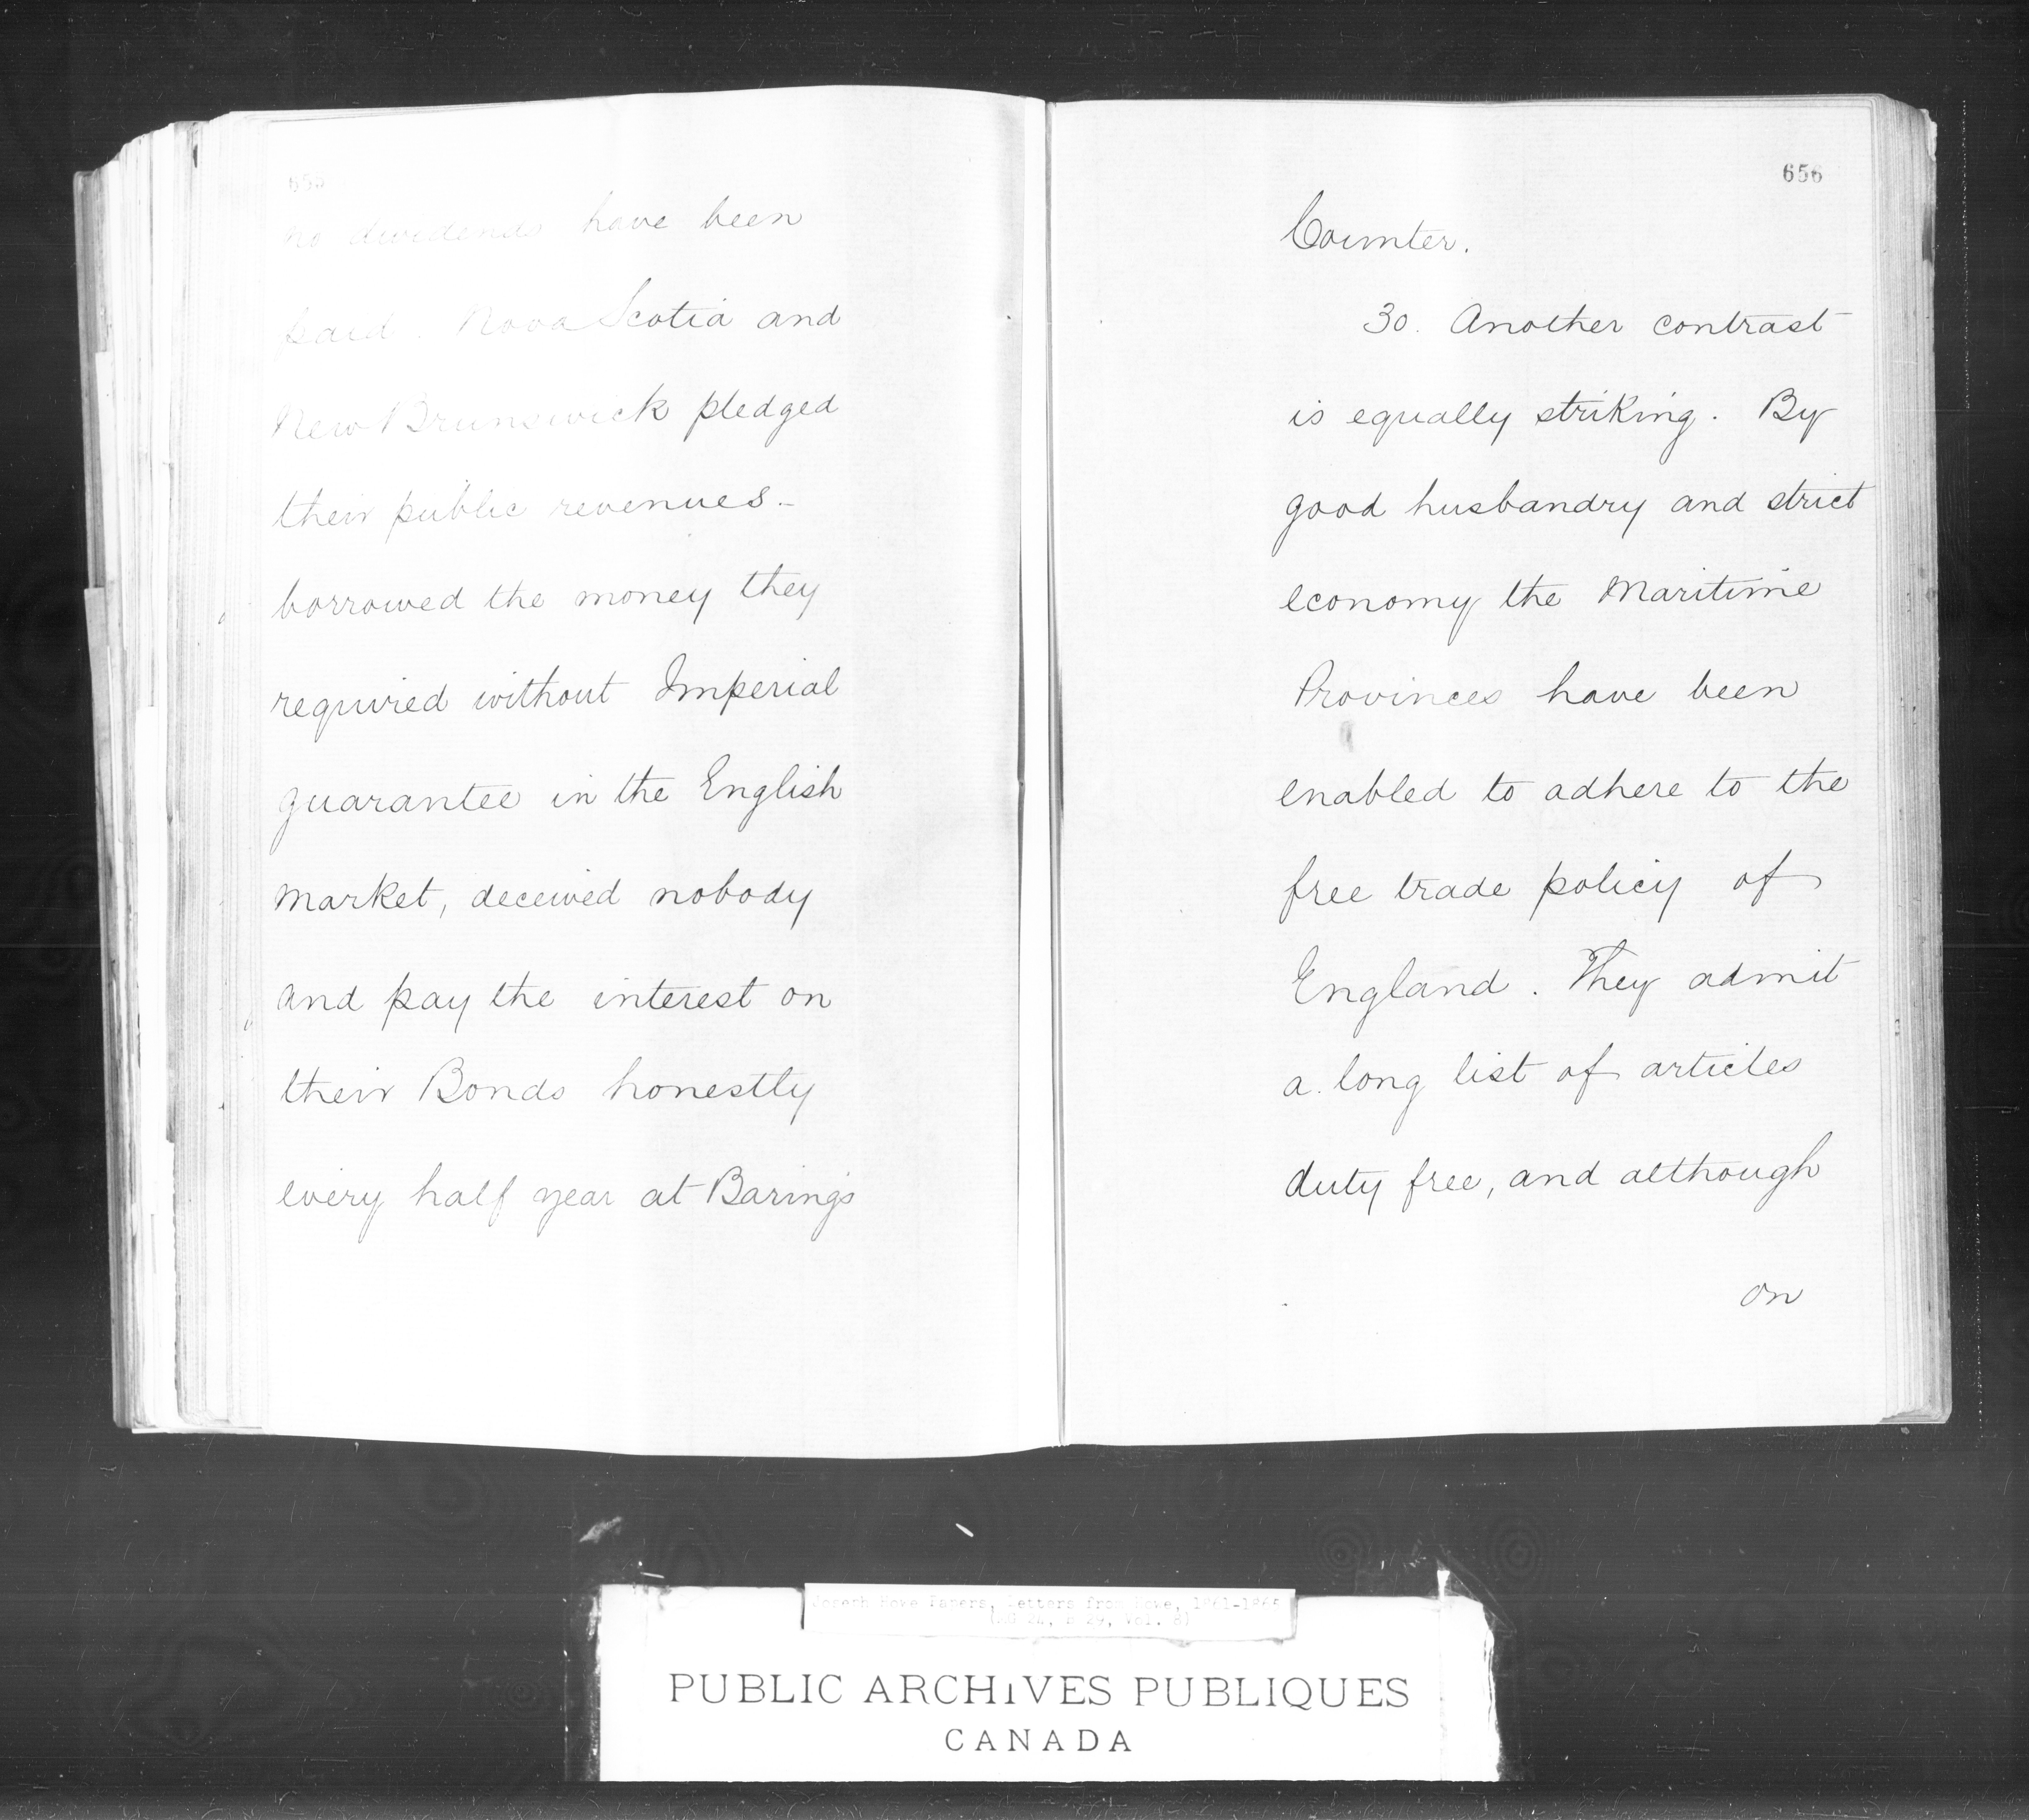 655
no dividends have been
paid. Nova Scotia and
New Brunswick pledged
their public revenues -
borrowed the money they
required without Imperial
guarantee in the English
market, deceived nobody
and pay the interest on
their Bonds honestly
every half year at Baring's
656
Counter.
30. Another contrast
is equally striking. By
good husbandry and strict
economy the Maritime
Provinces have been
enabled to adhere to the
free trade policy of
England. They admit
a long list of articles
duty free, and although
on
Joseph Howe Papers, Letters from Howe, 1861-1865
(MG 24, B 29, Vol. 8)
PUBLIC ARCHIVES PUBLIQUES
CANADA